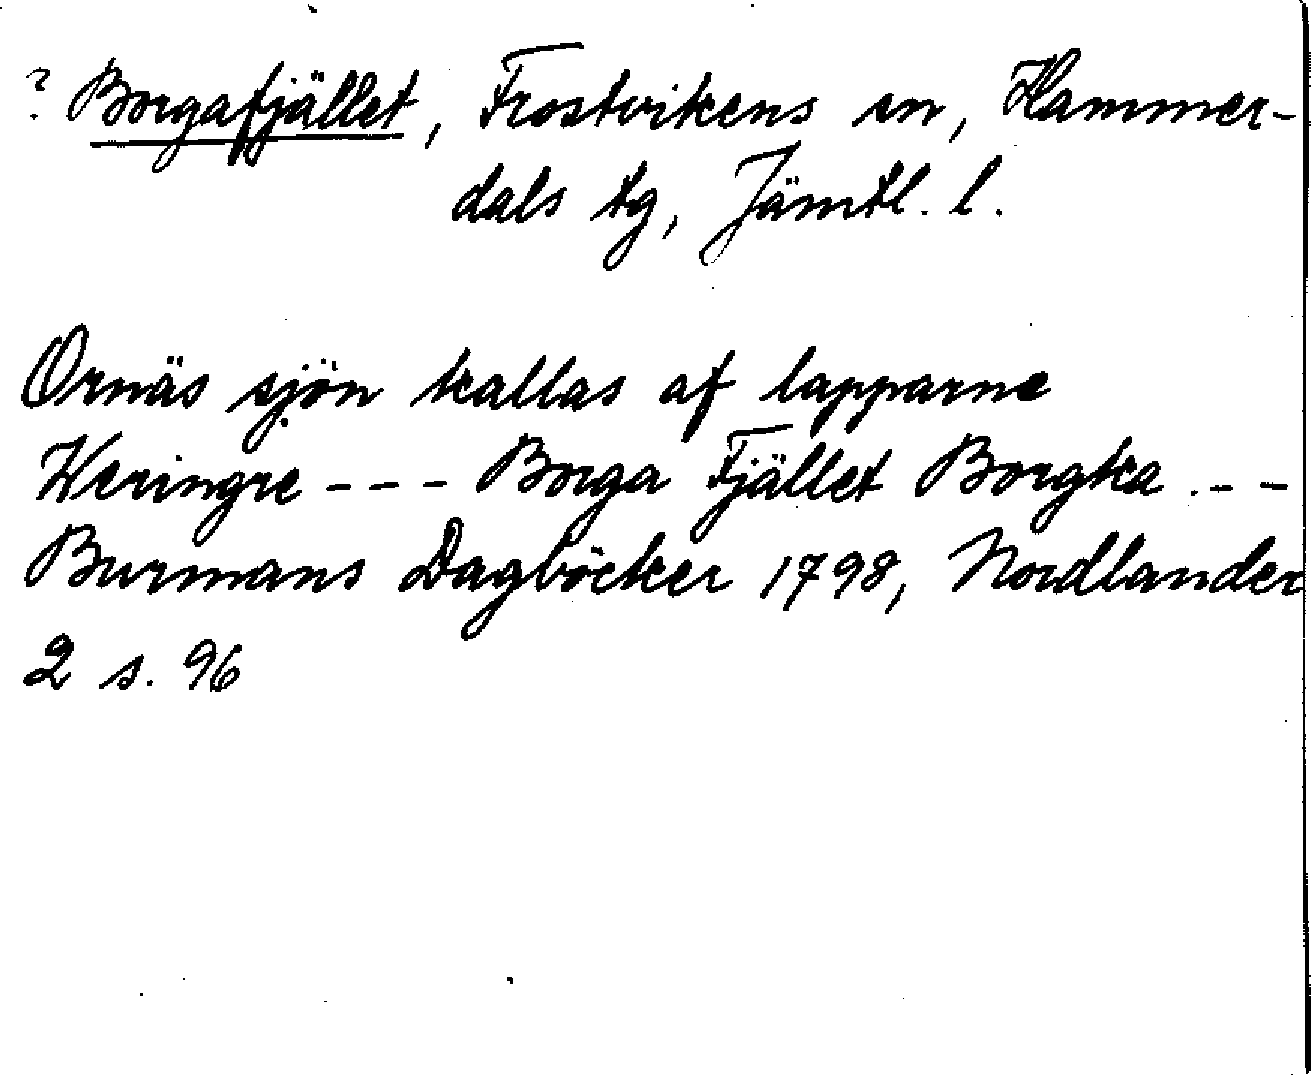 ? Borgafjället, Frostvikens sn, Hammer-
dals tg, Jämtl. l.
Ornäs sjön kallas af lapparne
Weringre --- Borga Fjället Borgka .--
Burmans Dagböcker 1798, Nordlander
2 s. 96